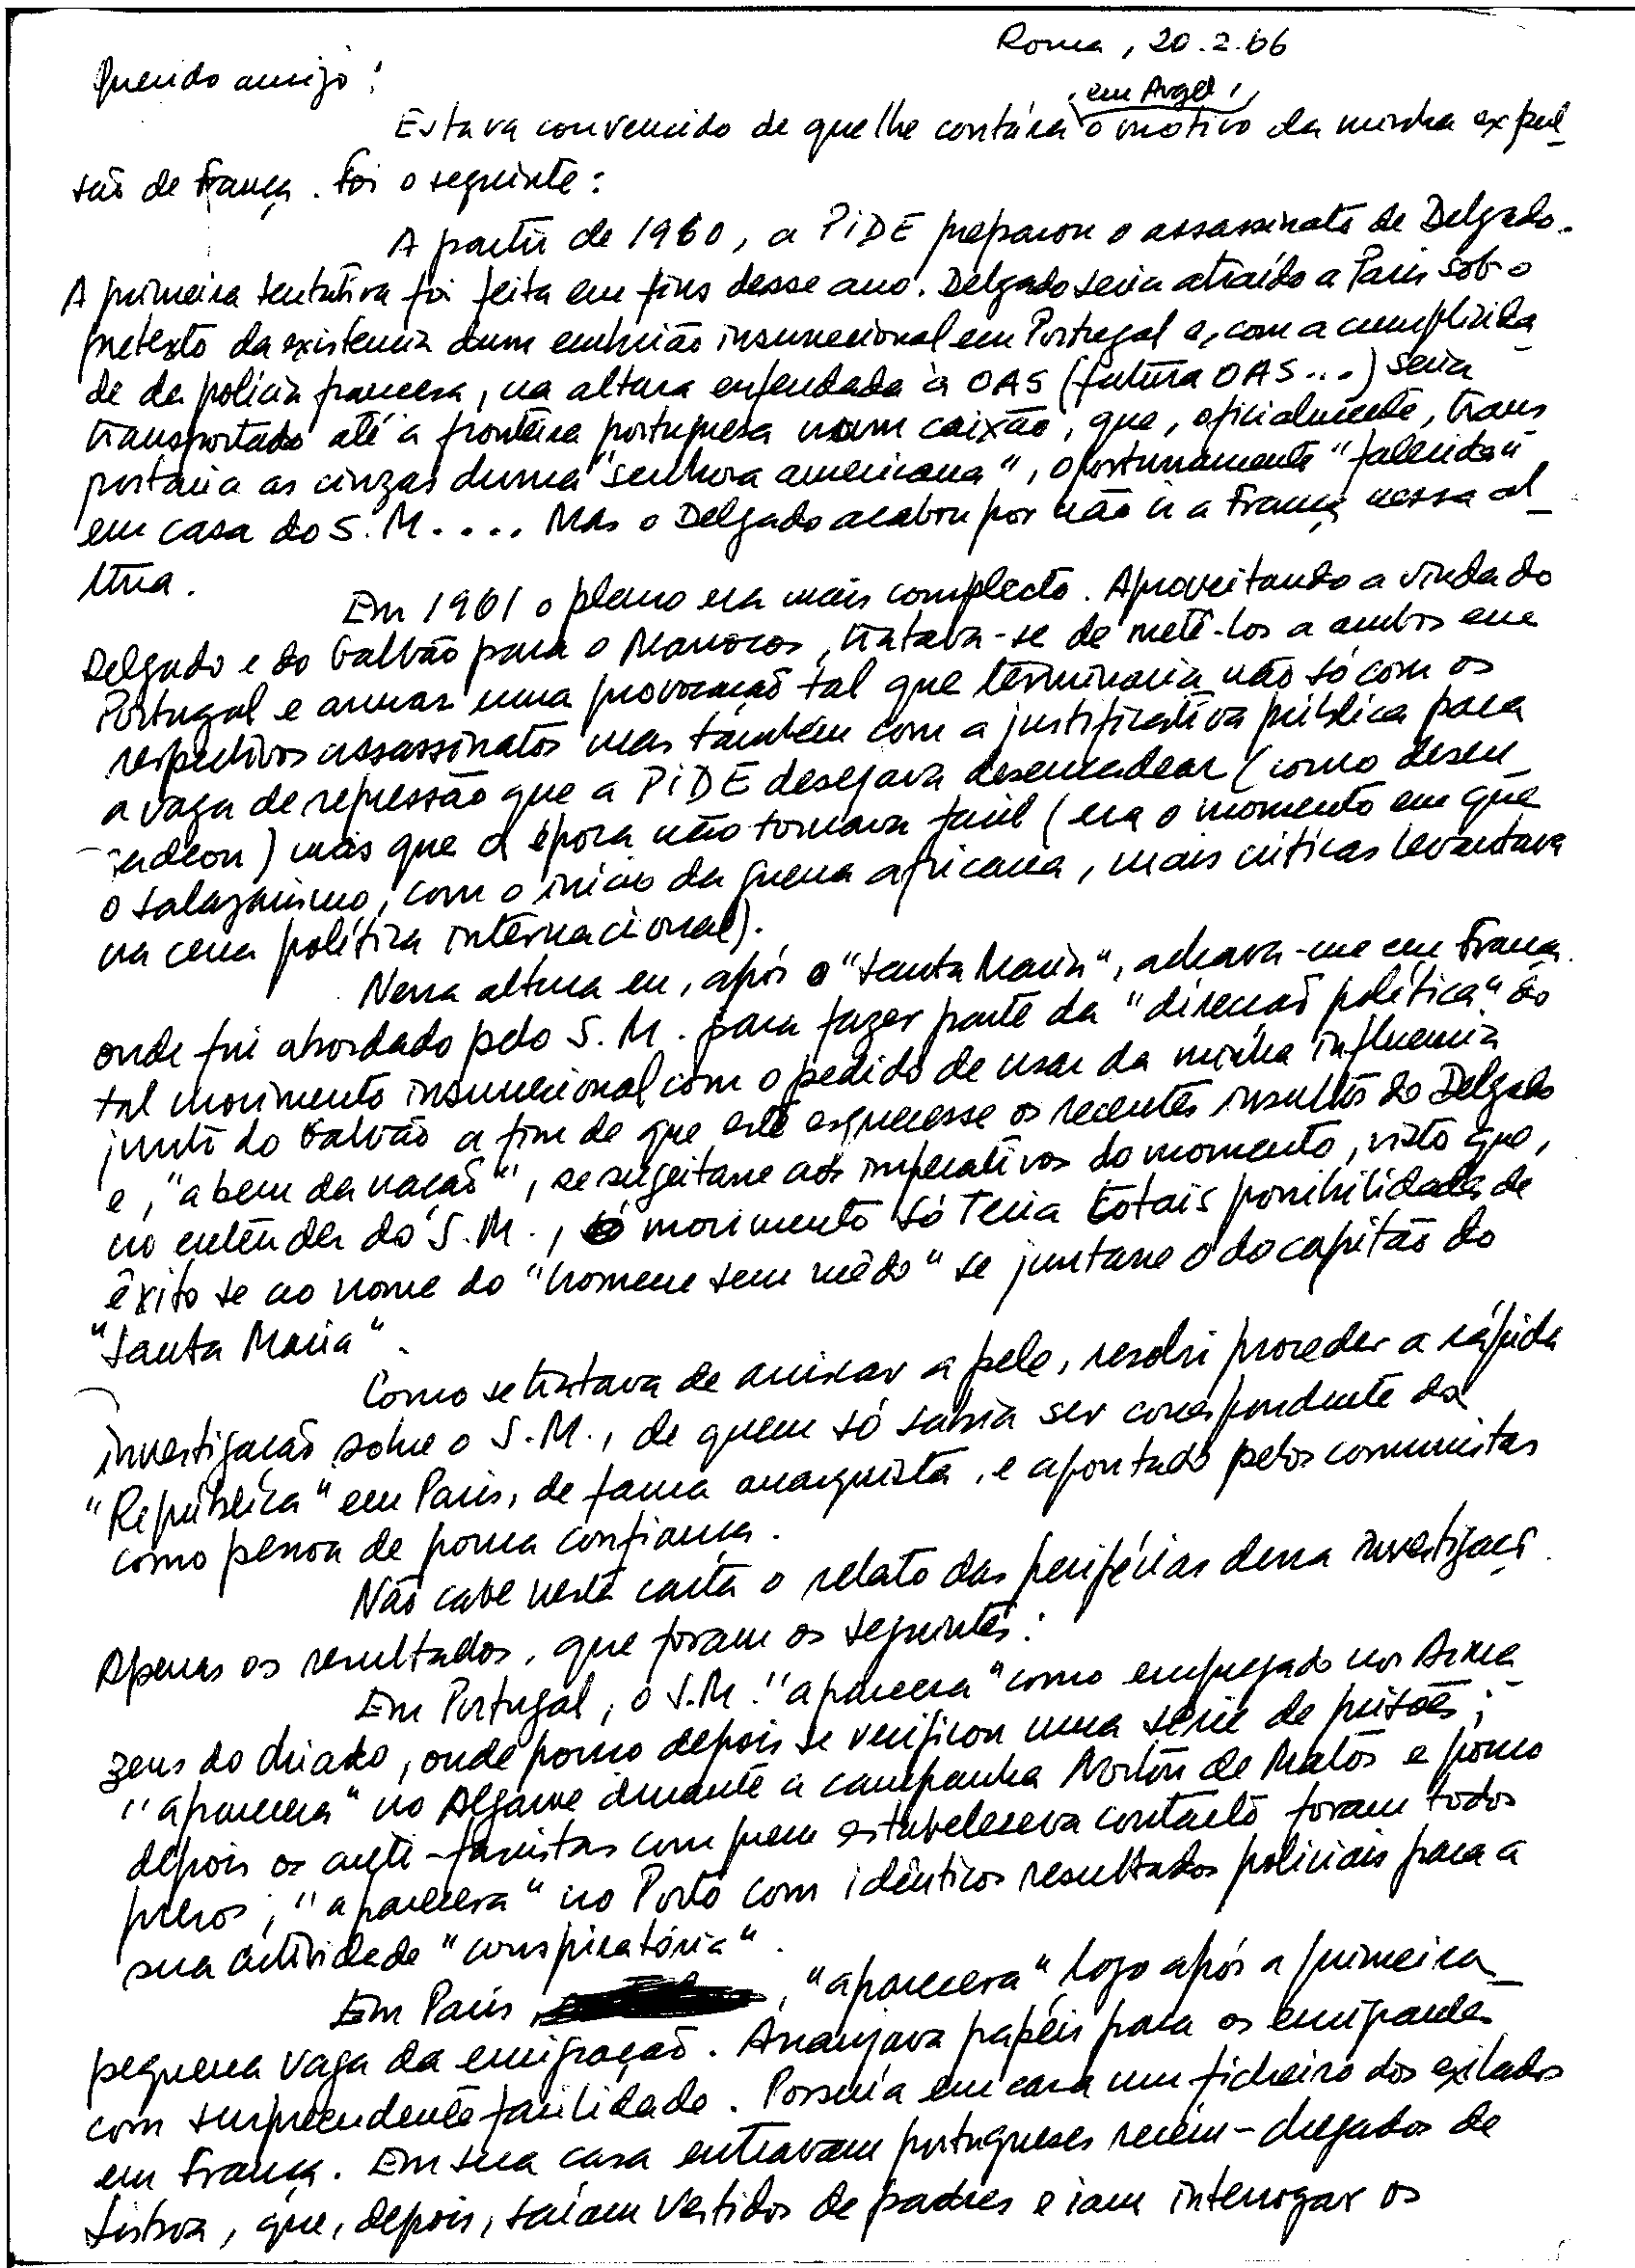 Roma, 20.2.66
Querido amigo:
, em Argel,
Estava convencido de que lhe contára o motivo da minha expul_
são de França. Foi o seguinte:
A partir de 1960, a PIDE preparou o assassinato de Delgado.
A primeira tentativa foi feita em fins desse ano. Delgado seria atraído a Paris sob o
pretexto da existencia dum embrião insurrecional em Portugal e, com a cumplicida_
de da polícia francesa, na altura enfeudada à OAS (futura OAS...) seria
transportado até à fronteira portuguesa num caixão, que, oficialmente, trans_
portaria as cinzas duma "senhora americana", oportunamente "falecida"
em casa do S.M.... Mas o Delgado acabou por não ir a França nessa al_
tura.
Em 1961 o plano era mais complecto. Aproveitando a vinda do
Delgado e do Galvão para o Marrocos, tratava-se de metê-los a ambos em
Portugal e armar uma provocação tal que terminaria não só com os
respectivos assassinatos mas também com a justificativa pública para
a vaga de repressão que a PIDE desejava desencadear (como desen_
cadeou) mas que a época não tornava facil (era o momento em que
o salazarismo, com o início da guerra africana, mais criticas levantava
na cena política internacional).
Nessa altura eu, após o "Santa Maria", achava-me em França
onde fui abordado pelo S.M. para fazer parte da "direcção política" do
tal movimento insurrecional com o pedido de usar da minha influencia
junto do Galvão a fim de que este esquecesse os recentes insultos do Delgado
e, "a bem da nação", se sugeitasse aos imperativos do momento, visto que,
no entender do S.M., o movimento só teria totais possibilidades de
êxito se ao nome do "homem sem mêdo" se juntasse o do capitão do
"Santa Maria".
Como se tratava de arriscar a pele, resolvi proceder a rápida
investigação sobre o S.M., de quem só sabia ser correspondente da
"República" em Paris, de fama anarquista, e apontado pelos comunistas
como pessoa de pouca confiança.
Não cabe nesta carta o relato das peripécias dessa investigação.
Apenas os resultados, que foram os seguintes:
Em Portugal, o S.M. "aparecera" como empregado nos Arma_
zens do Chiado, onde pouco depois se verificou uma série de prisões;
"aparecera" no Algarve durante a campanha Norton de Matos e pouco
depois os anti-fascistas com quem estabelecera contacto foram todos
presos; "aparecera" no Porto com idênticos resultados policiais para a
sua actividade "conspiratória".
Em Paris, "aparecera" logo após a primeira_
pequena vaga da emigração. Arranjava papéis para os emigrantes
com surpreendente facilidade. Possuía em casa um ficheiro dos exilados
em França. Em sua casa entravam portugueses recém-chegados de
Lisboa, que, depois, saíam vestidos de padres e iam interrogar os